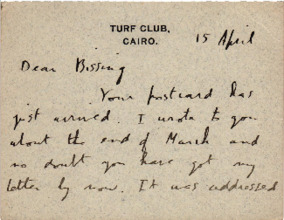 TURF CLUB,
CAIRO.
15 April
Dear Bissing
Your postcard has
just arrived. I wrote to you
about the end of March and
no doubt you have got my
letter by now. It was addressed